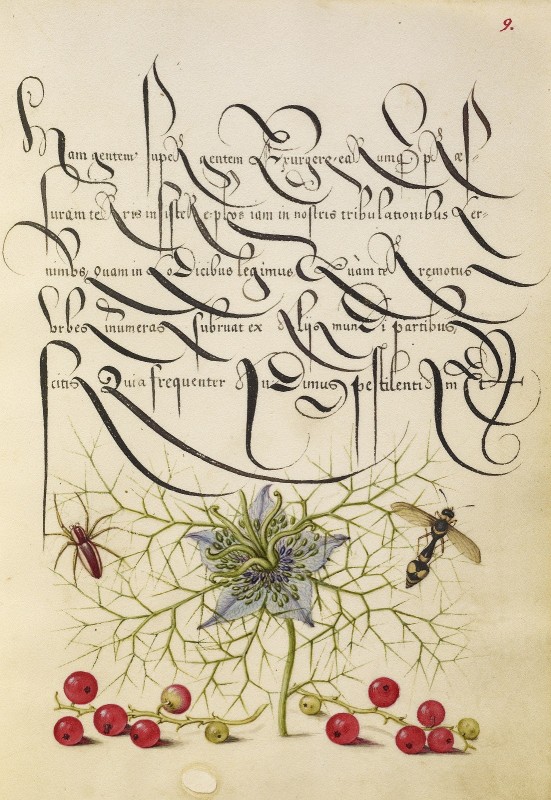 9.
Nam gentem super gentem Exurgere earumq præs=
suram terris insistere plus iam in nostris tribulationibus Cer=
nimus Quam in coDicibus legimus Quàm terremotus
Vrbes innumeras subruat ex alijs munDi partibus
scitis Quia frequenter audiuimus pestilentiam et